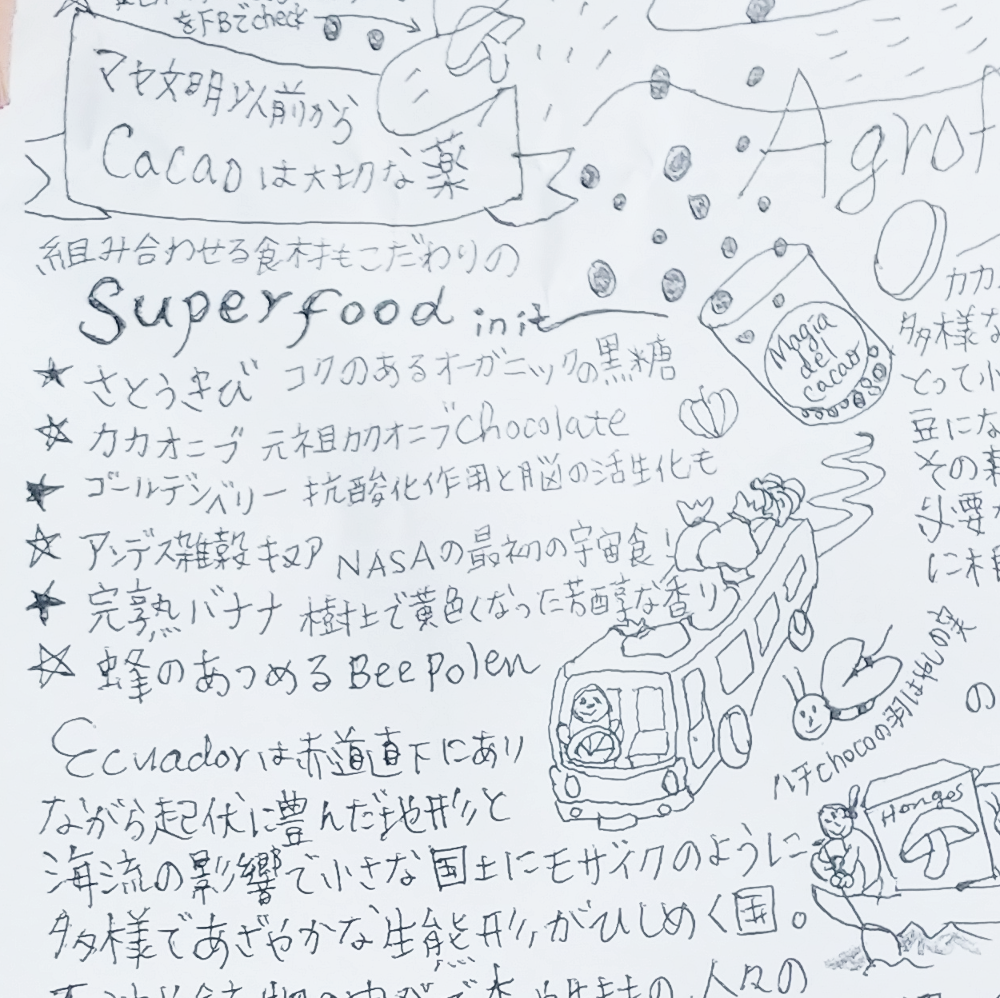 をFBでcheck
マヤ文明以前から
Cacaoは大切な薬
Agrof
組み合わせる食材もこだわりの
Superfood in it
★ さとうきび コクのあるオーガニックの黒糖
☆ カカオニブ 元祖カカオニブChocolate
★ ゴールデンベリー 抗酸化作用と脳の活性化も
☆ アンデス雑穀キヌア NASAの最初の宇宙食!
★ 完熟バナナ 樹上で黄色くなった芳醇な香り
☆ 蜂のあつめるBee Polen
Magia
del
cacao
カカ
多様な
とって小
豆にな
その
必要
に
Ecuadorは赤道直下にあり
ながら起伏に豊んだ地形と
海流の影響で小さな国土にモザイクのように
多様であざやかな生態形がひしめく国。
ハチchocoの
の
Hongos
人々の